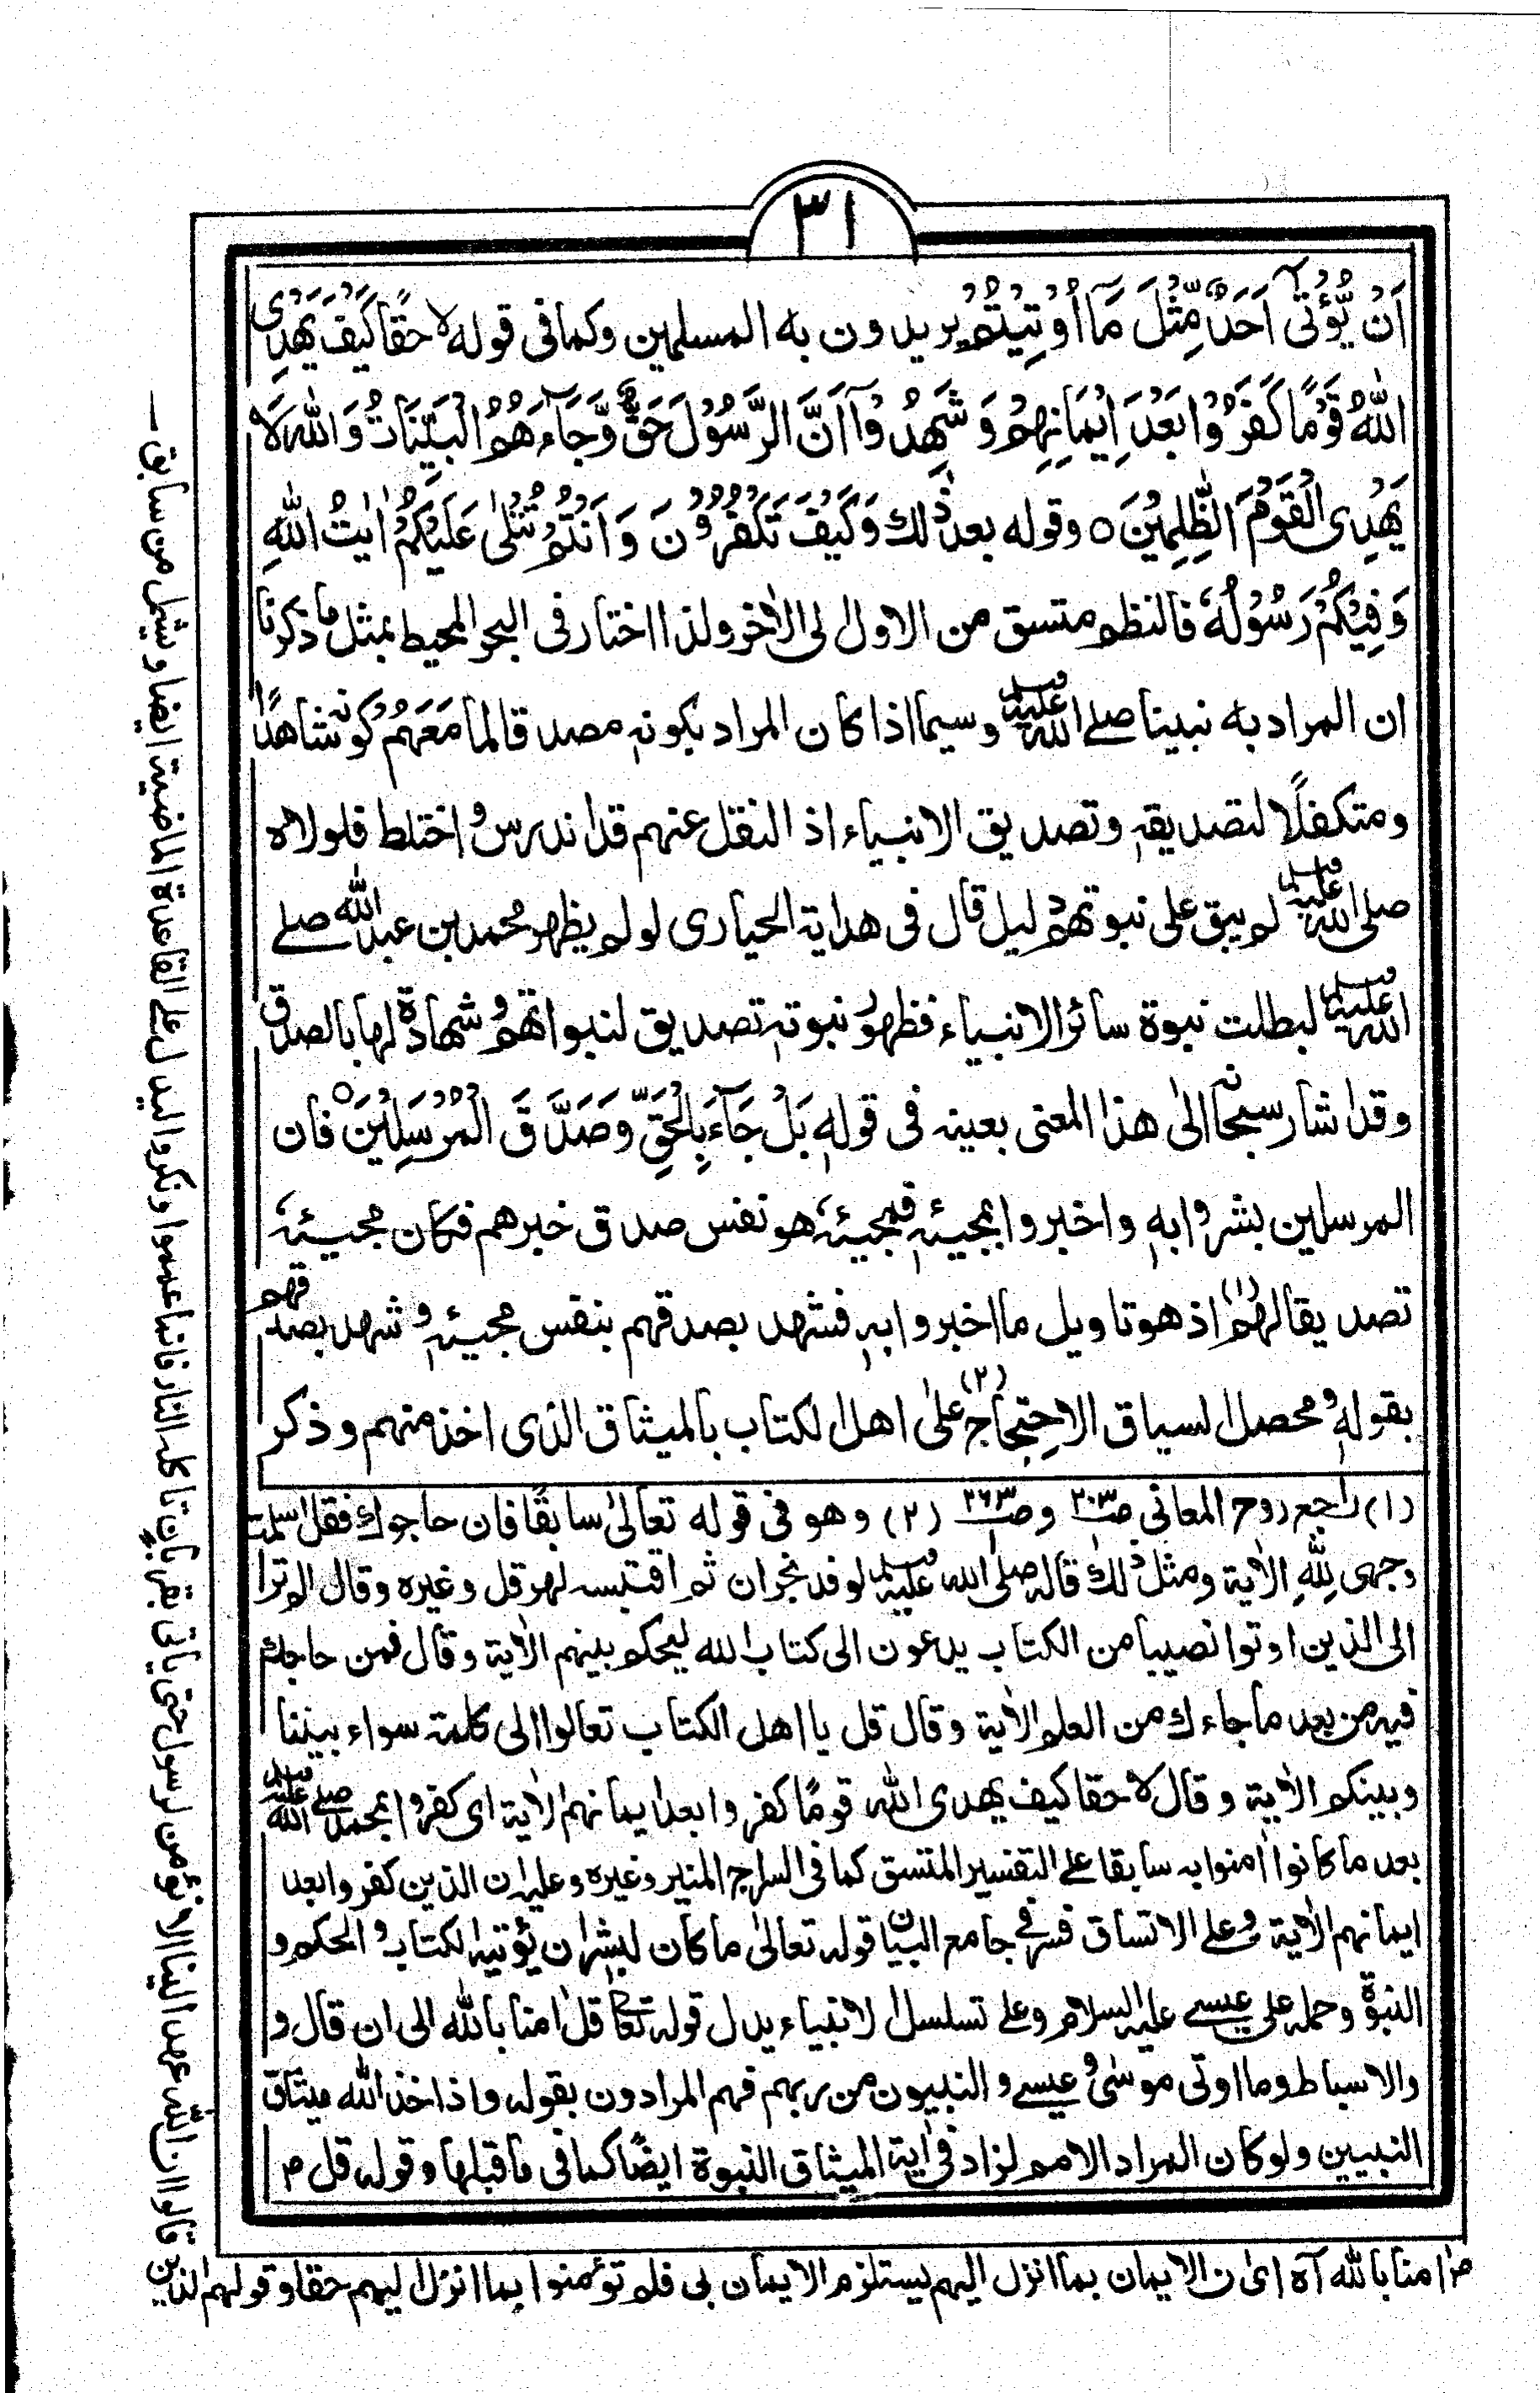 ٣١
اَنْ يُّؤْتٰٓى اَحَدٌ مِّثْلَ مَآ اُوْتِيْتُمْ يريدون به المسلمين وكما فى قوله لاحقًا كَيْفَ يَهْدِى
اللّٰهُ قَوْمًا كَفَرُوْا بَعْدَ اِيْمَانِهِمْ وَشَهِدُوْٓا اَنَّ الرَّسُوْلَ حَقٌّ وَّجَآءَهُمُ الْبَيِّنَاتُ وَاللّٰهُ لَا
يَهْدِى الْقَوْمَ الظّٰلِمِيْنَ ○ وقوله بعد ذٰلك وَكَيْفَ تَكْفُرُوْنَ وَاَنْتُمْ تُتْلٰى عَلَيْكُمْ اٰيٰتُ اللّٰهِ
وَفِيْكُمْ رَسُوْلُهٗ فالنظم متسق من الاول الى الاٰخر ولذا اختار فى البحر المحيط بمثل ما ذكرنا
ان المراد به نبينا صلے اللّٰه عليه وسلم وسيما اذا كان المراد بكونهٖ مصدقا لما مَعَهُمْ كونه شاهدًا
ومتكفلًا لتصديقهٖ وتصديق الانبياء اذ النقل عنهم قد اندرس واختلط فلولاه
صلى اللّٰه عليه وسلم لم يبق على نبوتهم دليل قال فى هداية الحيارى لو لم يظهر محمد بن عبد اللّٰه صلے
اللّٰه عليه وسلم لبطلت نبوة سائر الانبياء فظهور نبوتهٖ تصديق لنبواتهم وشهادة لها بالصدق
وقد اشار سبحانه الىٰ هذا المعنى بعينه فى قولهٖ بَلْ جَآءَ بِالْحَقِّ وَصَدَّقَ الْمُرْسَلِيْنَ ○ فان
المرسلين بشروا بهٖ واخبروا بمجيئهٖ فمجيئهٗ هو نفس صدق خبرهم فكان مجيئهٗ
تصديقا لهم (١) اذ هو تاويل ما اخبروا بهٖ فشهد بصدقهم بنفس مجيئهٖ وشهد بصدقهم
بقولهٖ ومحصل السياق الاحتجاج (٢) علىٰ اهل الكتاب بالميثاق الذى اخذ منهم وذكر
(١) راجع روح المعانى صـ ٢٠٣ وصـ ٢٦٣ (٢) وهو فى قوله تعالىٰ سابقًا فان حاجوك فقل اسلمت
وجهى لِلّٰهِ الاٰية ومثل ذٰلك قاله صلى اللّٰه عليه وسلم لوفد نجران ثم اقتبسه لهرقل وغيره وقال الم تر
الى الذين اوتوا نصيبا من الكتاب يدعون الى كتاب اللّٰه ليحكم بينهم الاٰية وقال فمن حاجك
فيه من بعد ما جاءك من العلم الاٰية وقال قل يا اهل الكتاب تعالوا الى كلمة سواء بيننا
وبينكم الاٰية وقال لاحقا كيف يهدى اللّٰه قومًا كفروا بعد ايمانهم الاٰية اى كفروا بمحمد صلے اللّٰه عليه وسلم
بعد ما كانوا اٰمنوا به سابقا علے التفسير المتسق كما فى السراج المنير وغيره وعليه ان الذين كفروا بعد
ايمانهم الاٰية وعلے الاتساق فسر فى جامع البيان قوله تعالىٰ ما كان لبشر ان يؤتيه الكتاب والحكم و
النبوة وحمله على عيسے عليه السلام وعلے تسلسل الانبياء يدل قوله تعالى قل اٰمنا باللّٰه الى ان قال و
والاسباط وما اوتى موسٰى وعيسے والنبيون من ربهم فهم المرادون بقوله واذ اخذ اللّٰه ميثاق
النبيين ولو كان المراد الامم لزاد فى اٰية الميثاق النبوة ايضًا كما فى ما قبلها وقوله قل م
اٰمنا باللّٰه آه اى ان الايمان بما انزل اليهم يستلزم الايمان بى فلم تؤمنوا بما انزل اليهم حقا وقولهم الذين
قالوا ان اللّٰه عهد الينا الا نؤمن لرسول حتى ياتينا بقربان تاكله النار فانما عمموا ونكروا ليدل على القاعدة الماضية ايضا ويشمل من سابق ـ